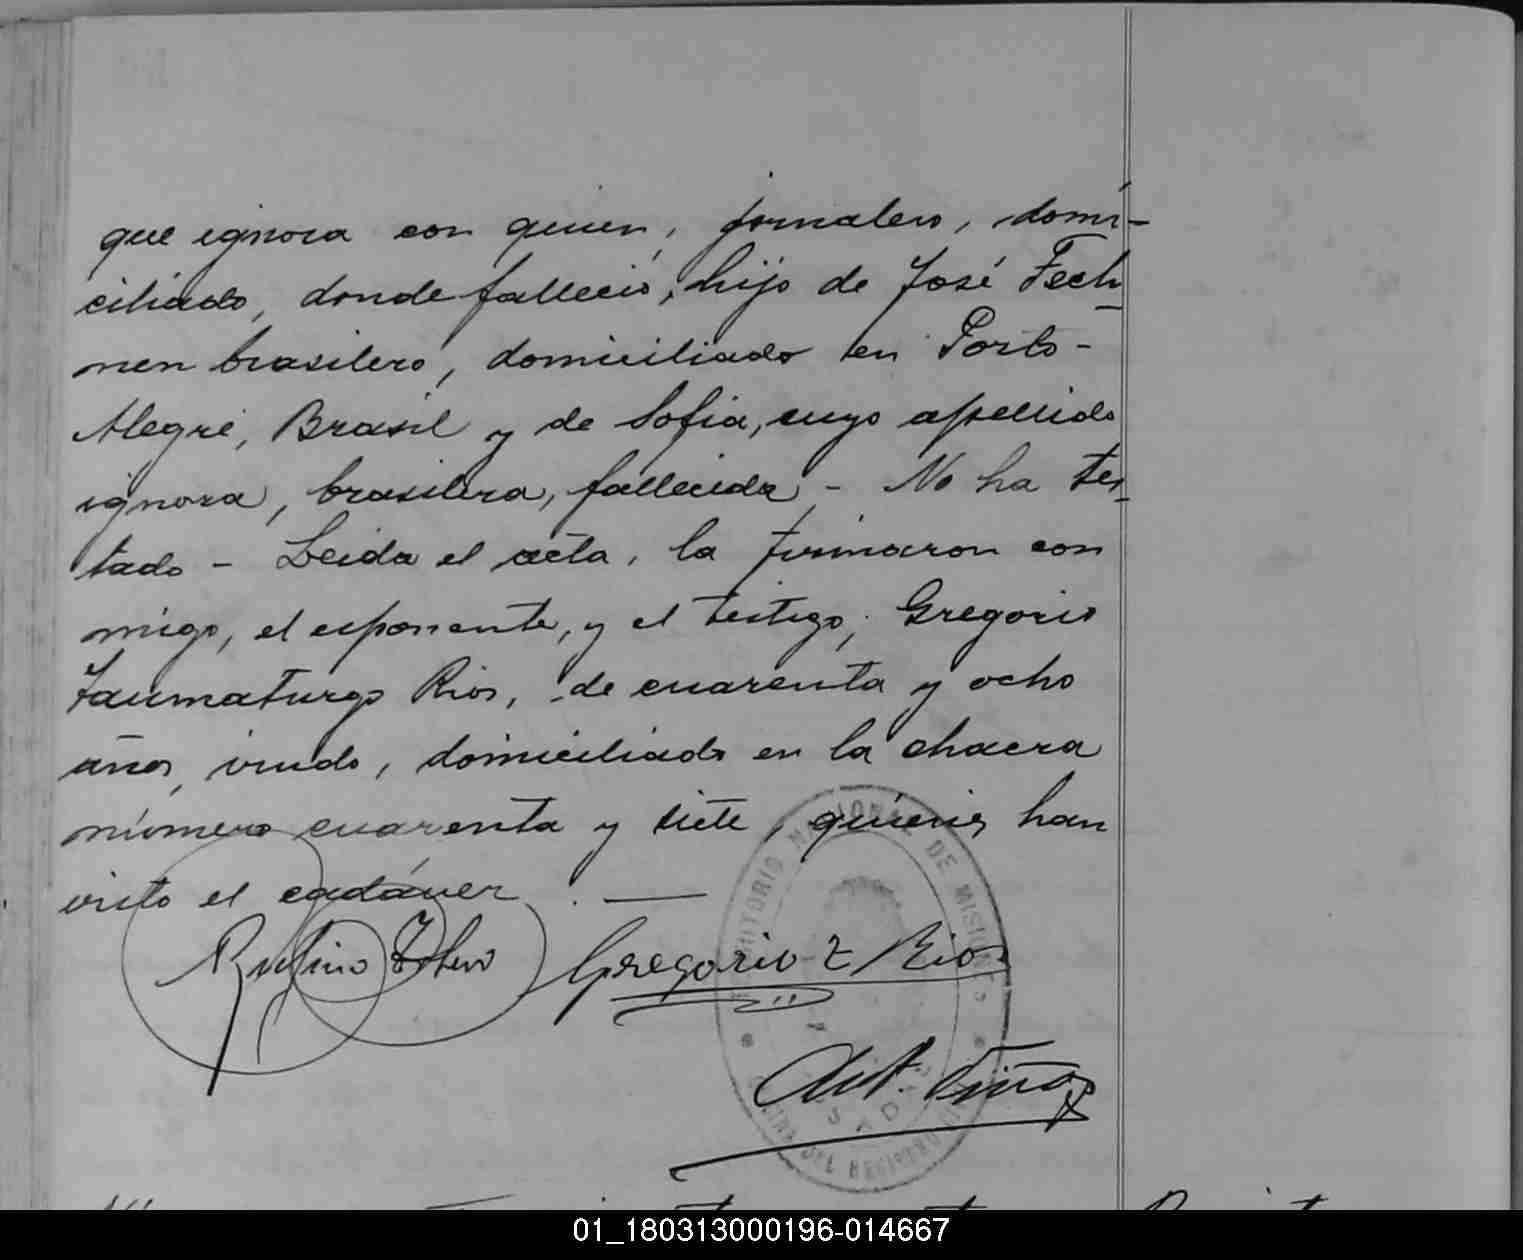 que ignora con quien, jornalero, domi-
ciliado, donde falleció, hijo de José Fech-
men brasilero, domiciliado en Porto-
Alegre, Brasil y de Sofia, cuyo apellido
ignora, brasilera, fallecida - No ha tes-
tado - Leida el acta, la firmaron con
migo, el esponente, y el testigo, Gregorio
Taumaturgo Rios, de cuarenta y ocho
años, viudo, domiciliado en la chacra
número cuarenta y siete, quienes han
visto el cadáver. —
Rufino Gregorio T Rios
TERRITORIO NACIONAL DE MISIONES
OFICINA DEL REGISTRO
POSADAS
01_180313000196-014667